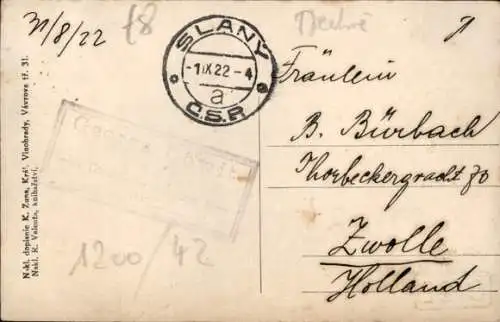 31/8/22
f8
SLANÝ
-1 IX 22-4
a
Č.S.R.
Fräulein
B. Bürbach
Thorbeckergracht 70
Zwolle
Holland
1200/42
Nakl. dopisnic K. Zuna, Král. Vinohrady, Vávrova tř. 31.
Nakl. R. Valenta, knihařství,